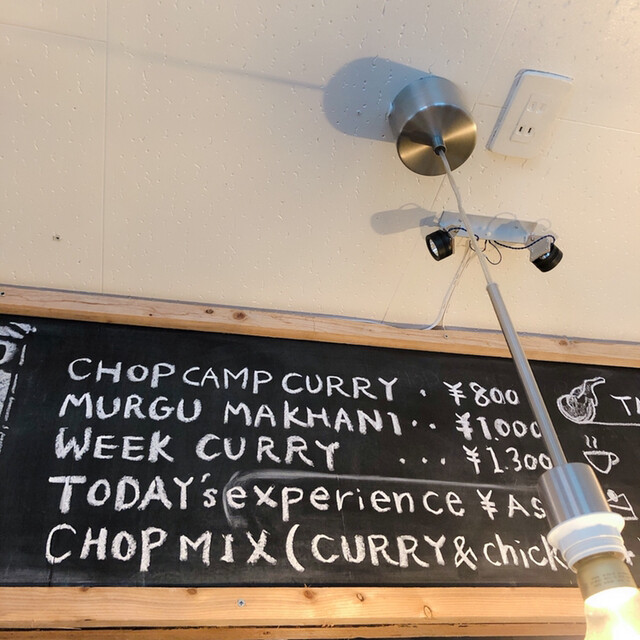 CHOP CAMP CURRY . ¥800
MURGU MAKHANI .. ¥1.000
WEEK CURRY ... ¥1.300
TODAY's experience ¥As
CHOP MIX (CURRY & chick